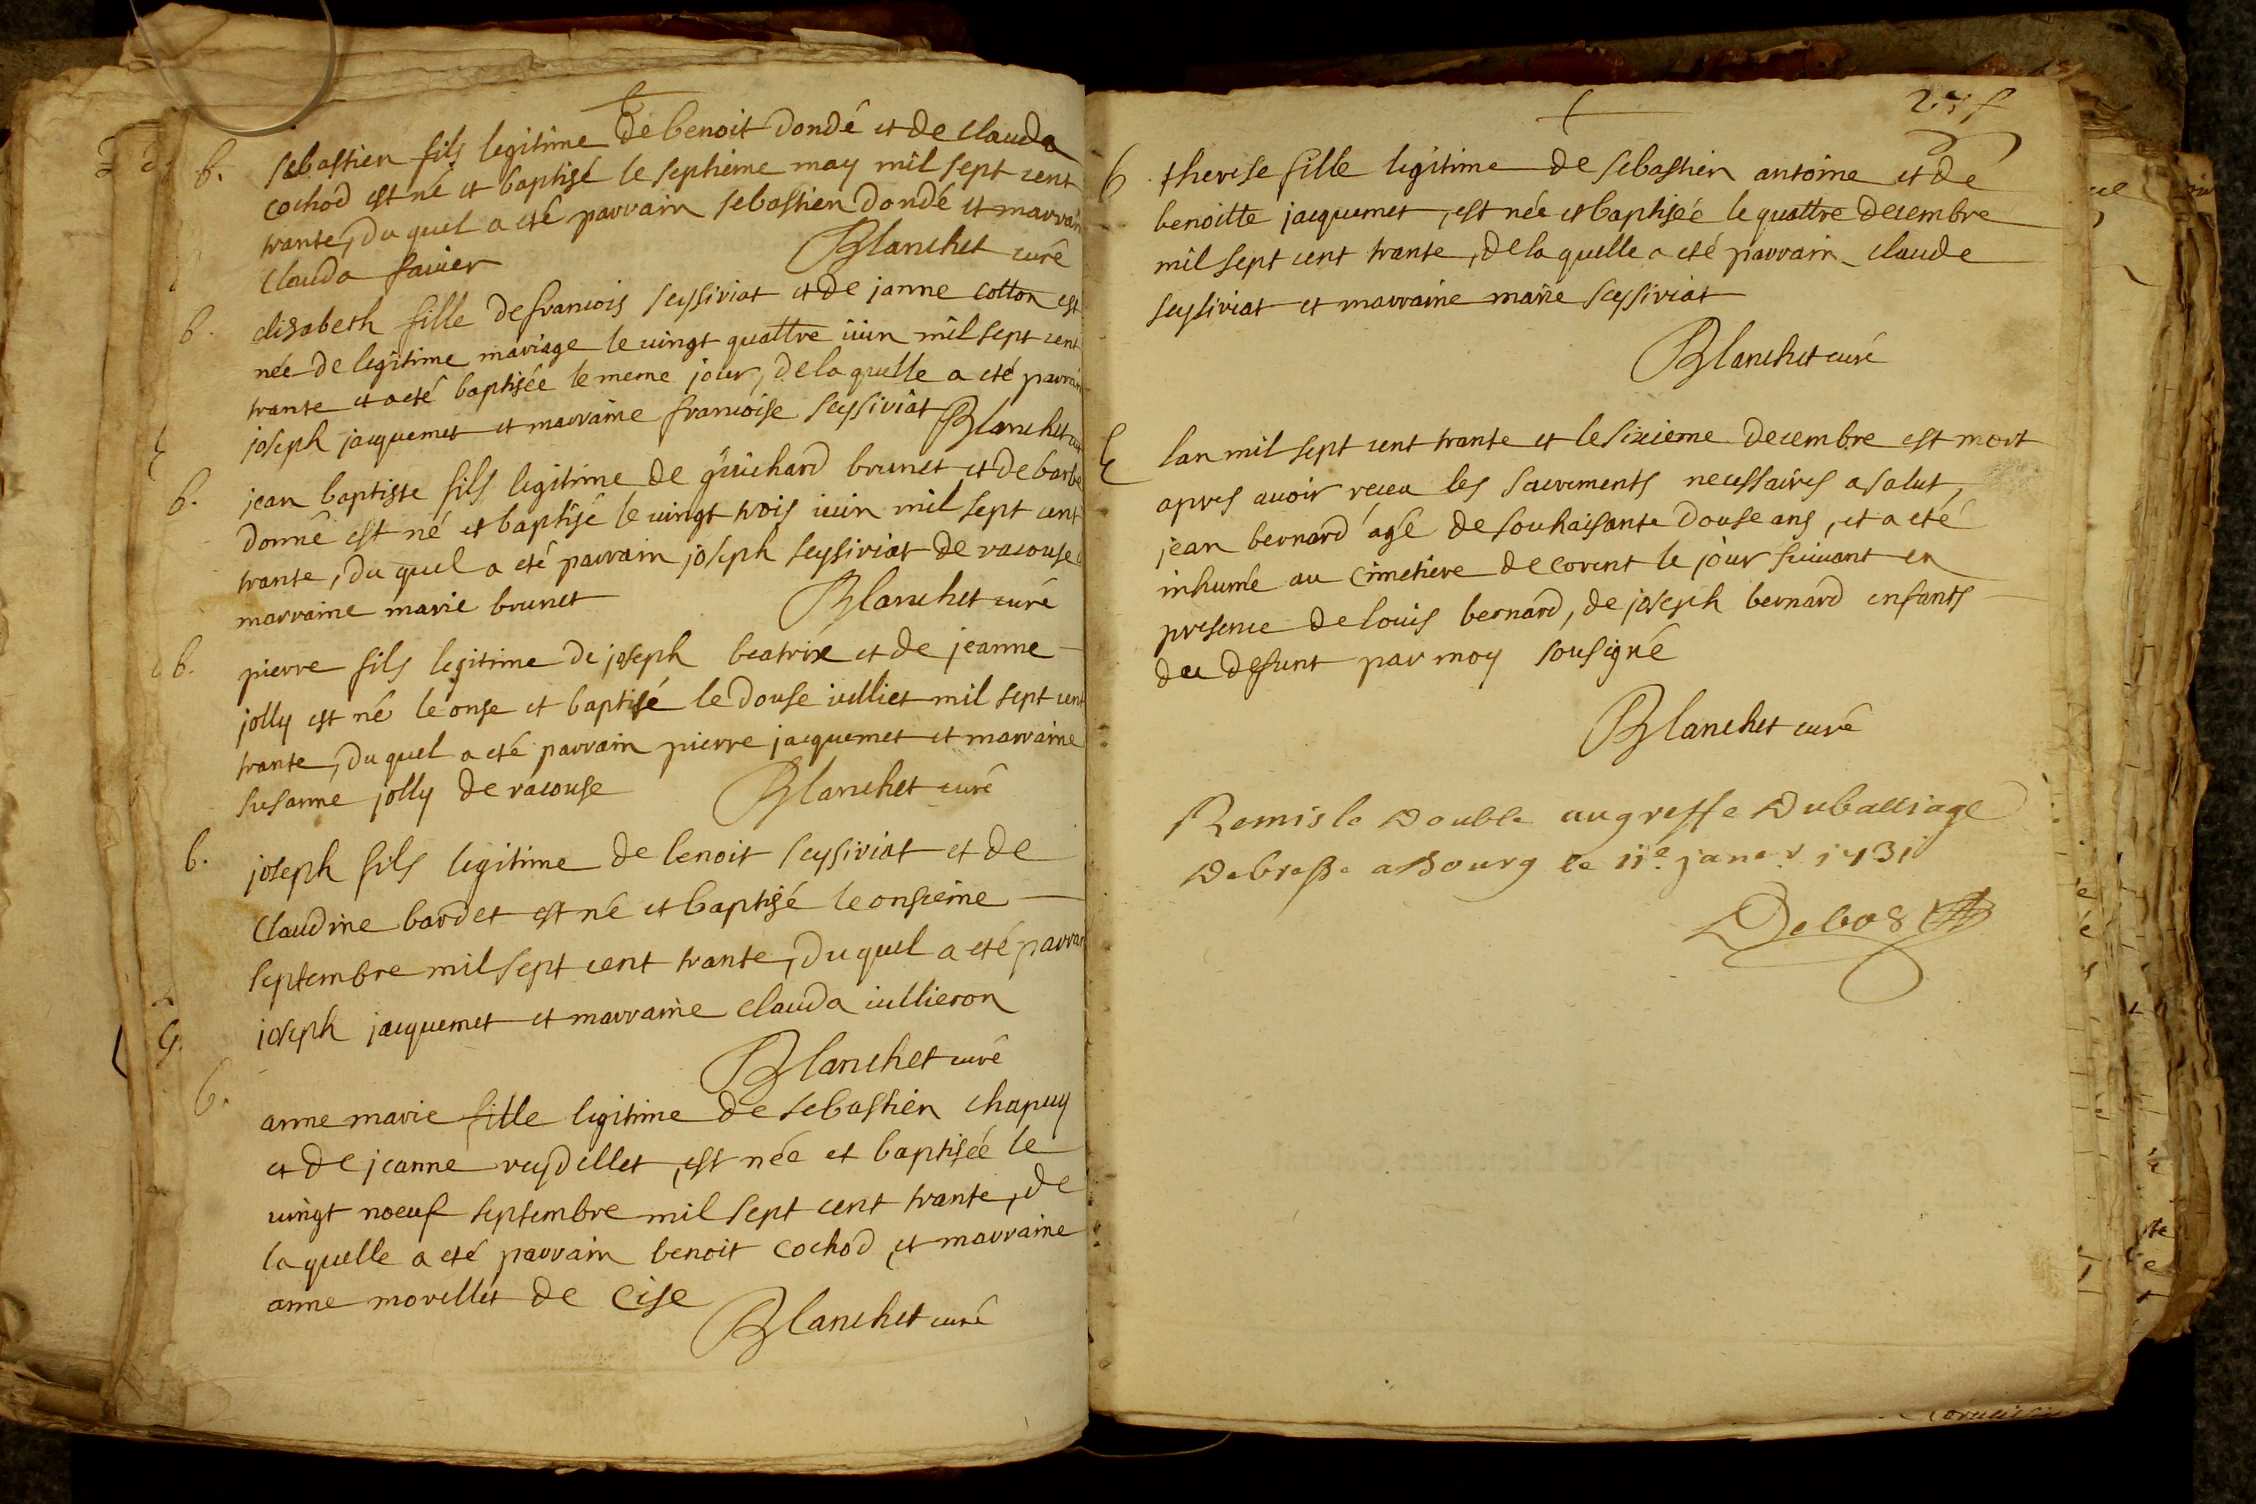 b. sebastien fils legitime de benoit dondé et de clauda
cochod est né et baptisé le septieme may mil sept cent
trante, du quel a eté parrain sebastien dondé et marrain
clauda favier Blanchet curé
b. elisabeth fille de francois seysiriat et de janne cotton est
née de legitime mariage le vingt quattre iuin mil sept cent
trante et a eté baptisée le meme jour, de la quelle a eté parrain
joseph jacquemet et marraine francoise seysiriat Blanchet curé
b. jean baptiste fils legitime de guichard brunet et de barbe
donné est né et baptisé le vingt trois iuin mil sept cent
trante, du quel a eté parrain joseph seysiriat de racouse
marraine marie brunet Blanchet curé
b. pierre fils legitime de joseph beatrix et de jeanne
jolly est né le onse et baptisé le douse iulliet mil sept cent
trante, du quel a eté parrain pierre jacquemet et marraine
susanne jolly de racouse Blanchet curé
b. joseph fils legitime de benoit seysiriat et de
claudine bardet est né et baptisé le onsieme
septembre mil sept cent trante, du quel a eté parrain
joseph jacquemet et marraine clauda iullieron
Blanchet curé
b. anne marie fille legitime de sebastien chapuy
et de jeanne reydellet, est née et baptisée le
vingt noeuf septembre mil sept cent trante, de
la quelle a eté parrain benoit cochod, et marraine
anne morellet de Cise
Blanchet curé
b. therese fille legitime de sebastien antoine et de
benoitte jacquemet, est née et baptisée le quattre decembre
mil sept cent trante, de la quelle a eté parrain claude
seysiriat et marraine marie seysiriat
Blanchet curé
lan mil sept cent trante et le sixieme decembre est mort
apres avoir receu les sacrements necessaires a salut,
jean bernard agé de souhaisante douse ans, et a eté
inhumé au cimetiere de corent le jour suivant en
presence de louis bernard, de joseph bernard enfants
du defunt par moy sousigné
Blanchet curé
Remis le Double au greffe Du balliage
De bresse a Bourg le 11e janer 1731
Debost